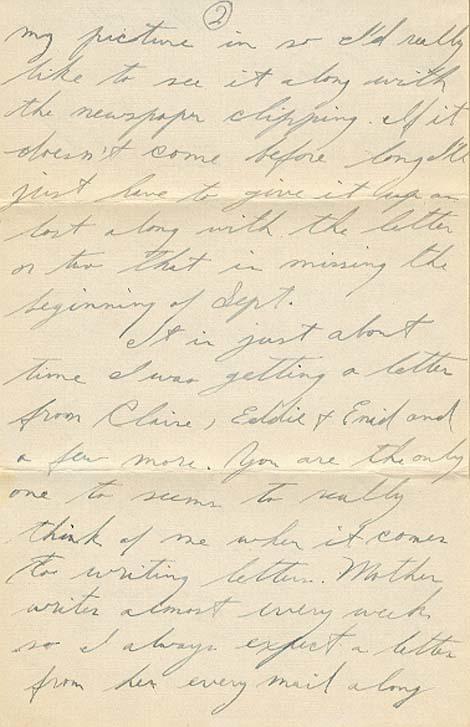 2
my picture in so I'd really
like to see it along with
the newspaper clipping. If it
doesn't come before long I'll
just have to give it up as
lost along with the letter
or two that is missing the
beginning of Sept.
It is just about
time I was getting a letter
from Claire, Eddie & Enid and
a few more. You are the only
one to seems to really
think of me when it comes
to writing letters. Mother
writes almost every week
so I always expect a letter
from her every mail along